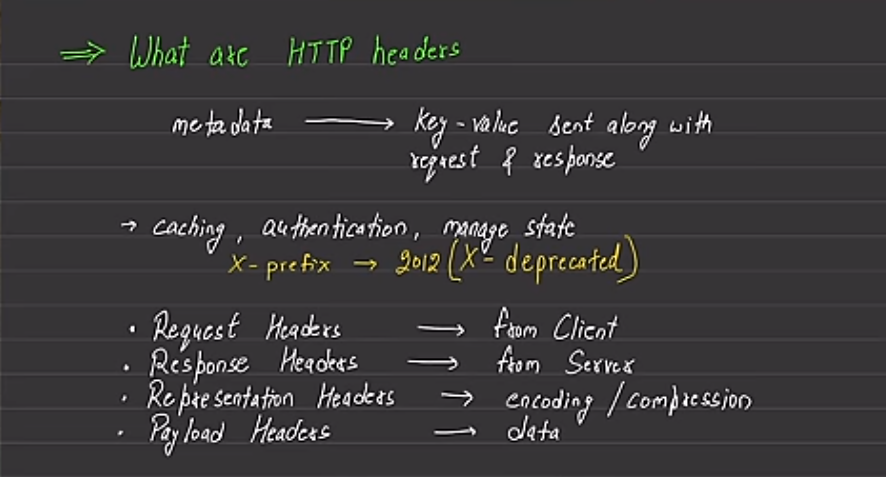 ⇒ What are HTTP headers
metadata → key-value sent along with
request & response
→ caching, authentication, manage state
X-prefix → 2012 (X- deprecated)
• Request Headers → from Client
• Response Headers → from Server
• Representation Headers → encoding / compression
• Payload Headers → data